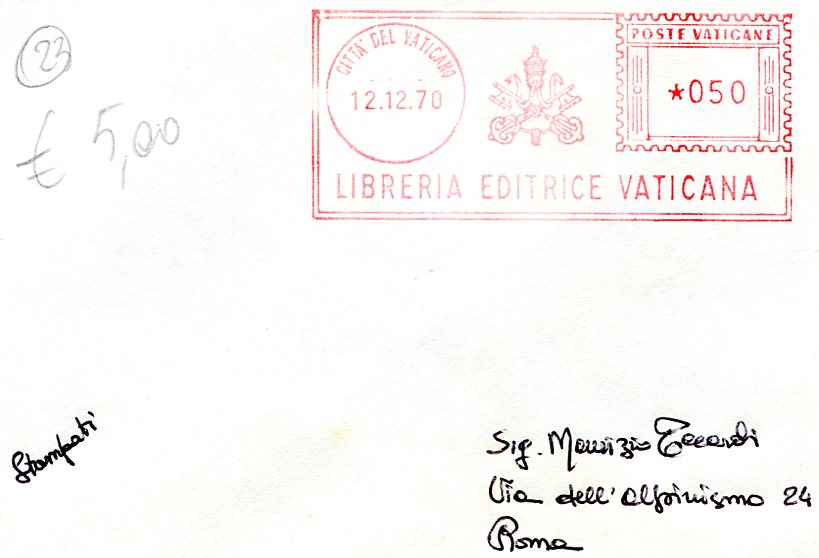 23
€ 5,00
CITTA' DEL VATICANO
12.12.70
POSTE VATICANE
*050
LIBRERIA EDITRICE VATICANA
Stampati
Sig. Maurizio
Via dell'Alpinismo 24
Roma